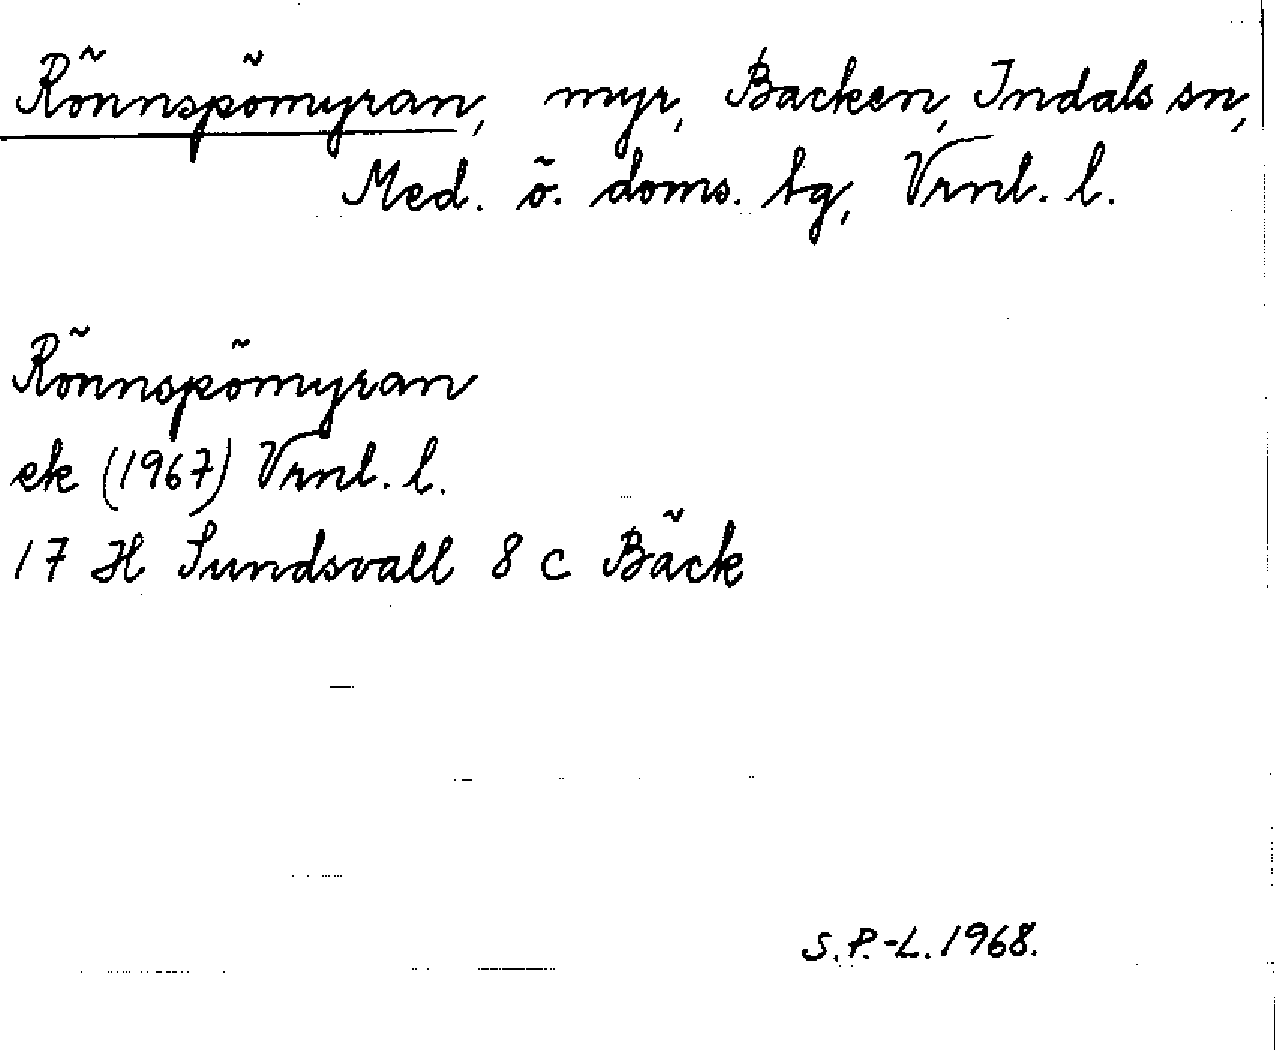 Rönnspömyran, myr, Backen, Indals sn,
Med. ö. doms. tg, Vrnl. l.
Rönnspömyran
ek (1967) Vrnl. l.
17 H Sundsvall 8 c Bäck
S.P.-L. 1968.